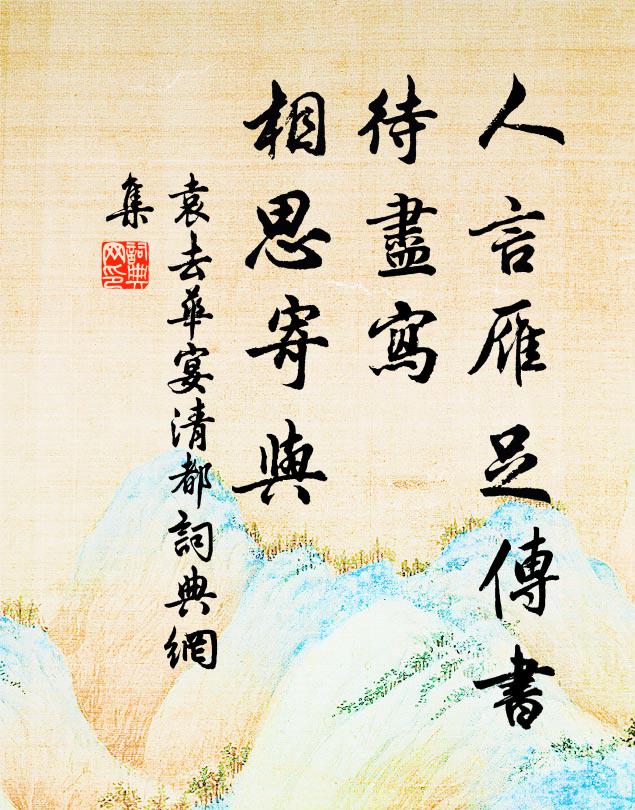 人言雁足傳書
待盡寫
相思寄與
袁去華宴清都詞典網
集
詞典網印